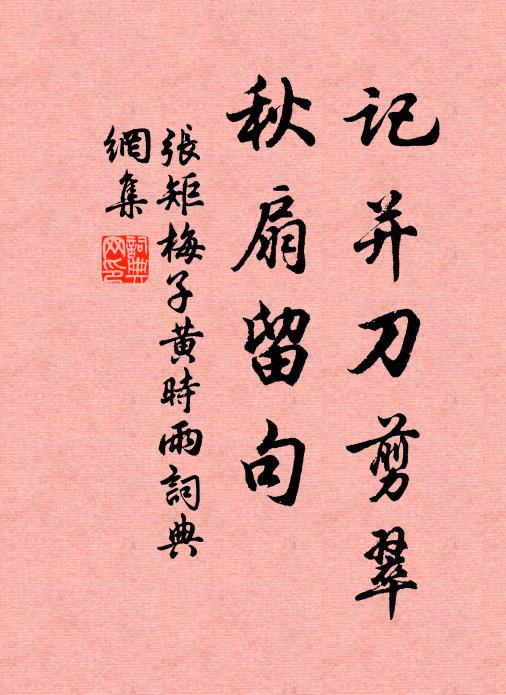 記并刀剪翠
秋扇留句
張矩梅子黃時雨詞典
網集
詞典
网印